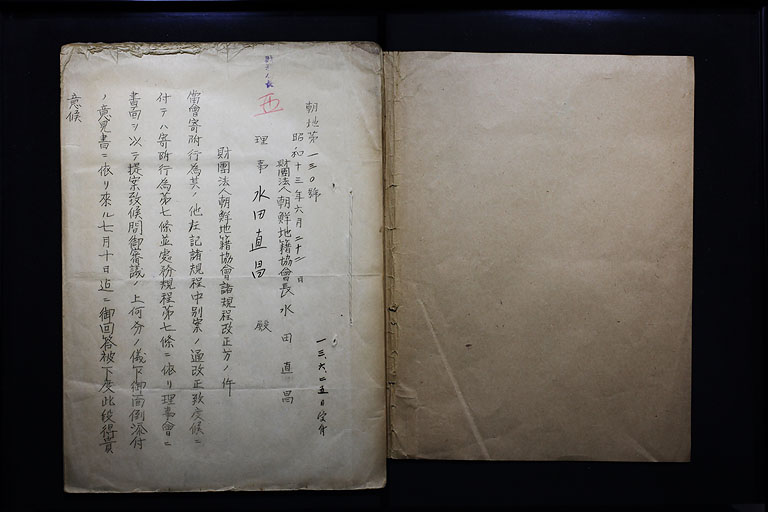 朝地第一三〇號
昭和十三年六月二十二日
財團法人朝鮮地籍協會長水田直昌
理事 水田直昌 殿
財團法人朝鮮地籍協會諸規程改正方ノ件
當會寄附行為其ノ他左記諸規程中別案ノ通改正致度候ニ
付テハ寄附行為第七條並處務規程第七條ニ依リ理事會ニ
書面ヲ以テ提案致候間御審議ノ上何分ノ儀乍御面倒添付
ノ意見書ニ依リ來ル七月十日迄ニ御回答被下度此段得貴
意候
一三、六、二五日受付
五